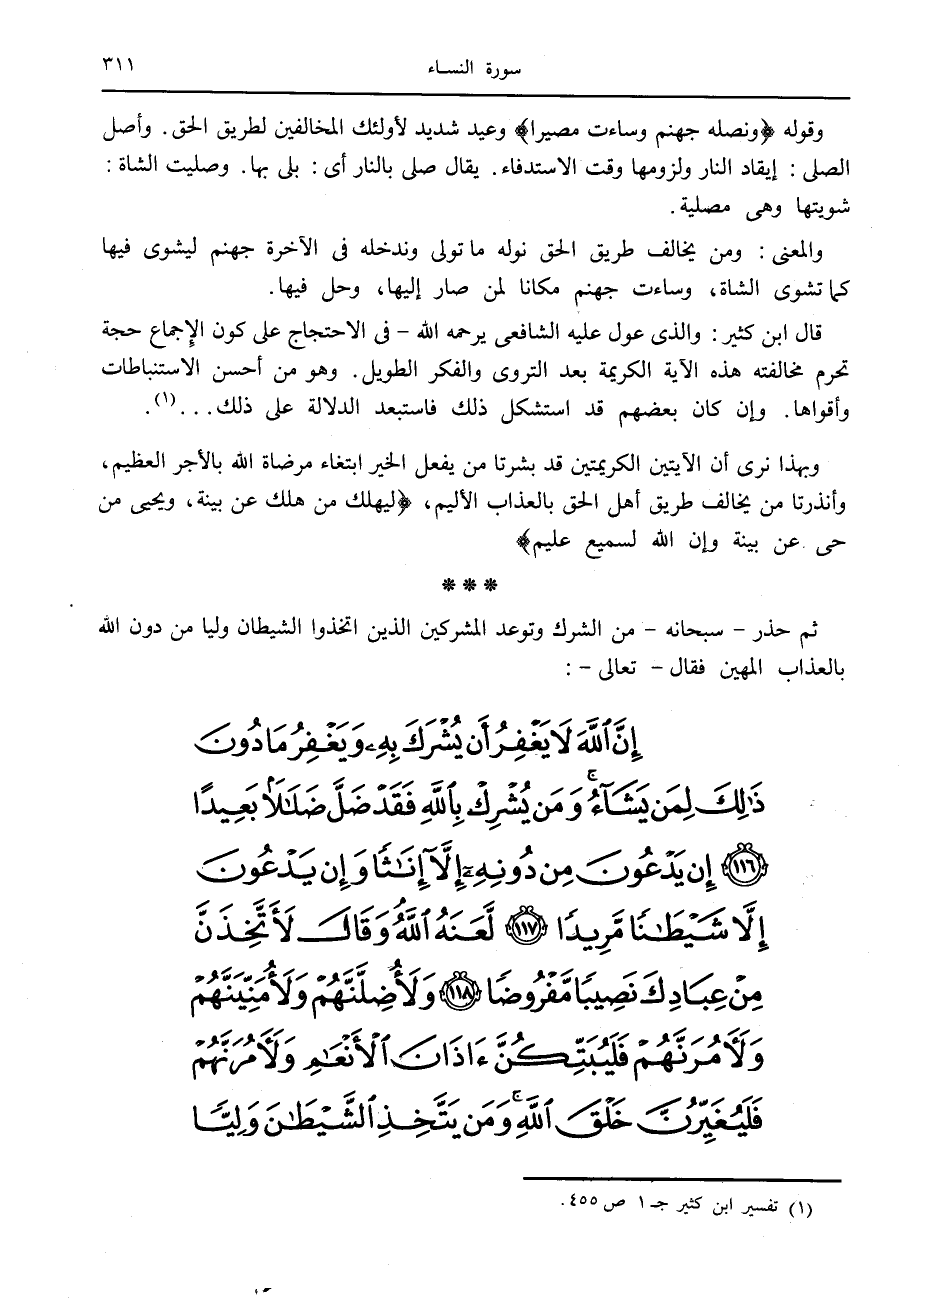 سورة النساء ٣١١
وقوله ﴿ونصله جهنم وساءت مصيرا﴾ وعيد شديد لأولئك المخالفين لطريق الحق. وأصل
الصلى : إيقاد النار ولزومها وقت الاستدفاء. يقال صلى بالنار أى : بلى بها. وصليت الشاة :
شويتها وهى مصلية.
والمعنى : ومن يخالف طريق الحق نوله ما تولى وندخله فى الآخرة جهنم ليشوى فيها
كما تشوى الشاة، وساءت جهنم مكانا لمن صار إليها، وحل فيها.
قال ابن كثير : والذى عول عليه الشافعى يرحمه الله – فى الاحتجاج على كون الإجماع حجة
تحرم مخالفته هذه الآية الكريمة بعد التروى والفكر الطويل. وهو من أحسن الاستنباطات
وأقواها. وإن كان بعضهم قد استشكل ذلك فاستبعد الدلالة على ذلك...(١).
وبهذا نرى أن الآيتين الكريمتين قد بشرتا من يفعل الخير ابتغاء مرضاة الله بالأجر العظيم،
وأنذرتا من يخالف طريق أهل الحق بالعذاب الأليم، ﴿ليهلك من هلك عن بينة، ويحيى من
حى عن بينة وإن الله لسميع عليم﴾
***
ثم حذر – سبحانه – من الشرك وتوعد المشركين الذين اتخذوا الشيطان وليا من دون الله
بالعذاب المهين فقال – تعالى – :
إِنَّ ٱللَّهَ لَا يَغْفِرُ أَن يُشْرَكَ بِهِۦ وَيَغْفِرُ مَا دُونَ
ذَٰلِكَ لِمَن يَشَآءُ ۚ وَمَن يُشْرِكْ بِٱللَّهِ فَقَدْ ضَلَّ ضَلَٰلًۢا بَعِيدًا
﴿١١٦﴾ إِن يَدْعُونَ مِن دُونِهِۦٓ إِلَّآ إِنَٰثًا وَإِن يَدْعُونَ
إِلَّا شَيْطَٰنًا مَّرِيدًا ﴿١١٧﴾ لَّعَنَهُ ٱللَّهُ وَقَالَ لَأَتَّخِذَنَّ
مِنْ عِبَادِكَ نَصِيبًا مَّفْرُوضًا ﴿١١٨﴾ وَلَأُضِلَّنَّهُمْ وَلَأُمَنِّيَنَّهُمْ
وَلَءَامُرَنَّهُمْ فَلَيُبَتِّكُنَّ ءَاذَانَ ٱلْأَنْعَٰمِ وَلَءَامُرَنَّهُمْ
فَلَيُغَيِّرُنَّ خَلْقَ ٱللَّهِ ۚ وَمَن يَتَّخِذِ ٱلشَّيْطَٰنَ وَلِيًّا
(١) تفسير ابن كثير جـ ١ ص ٤٥٥.